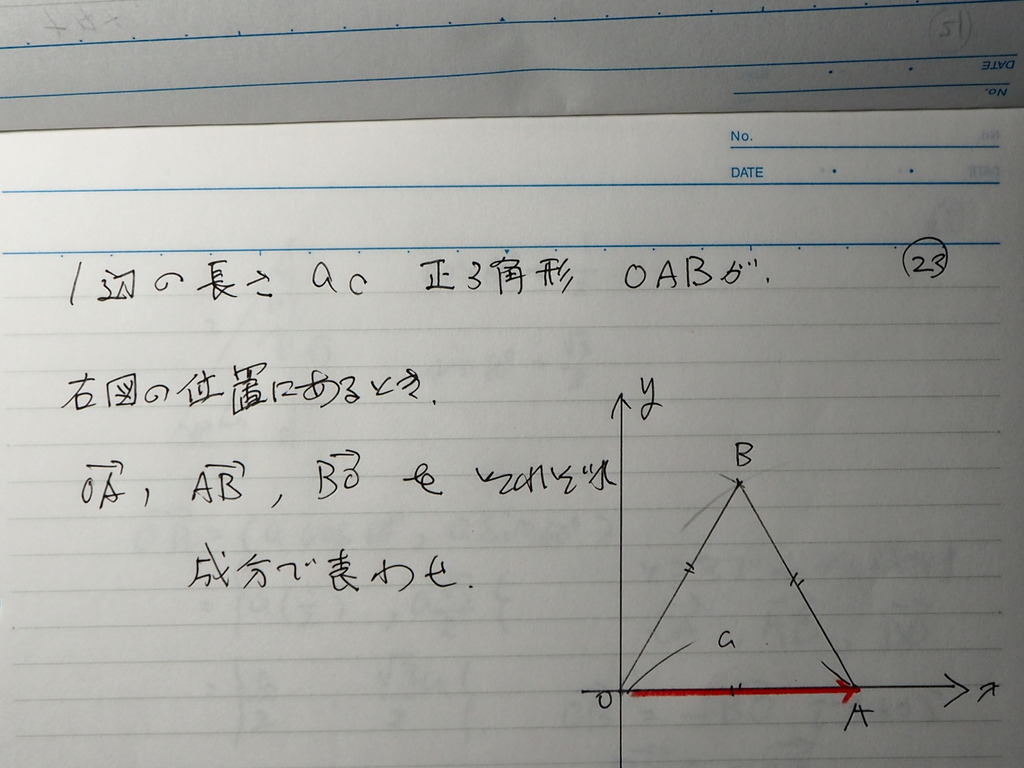 No.
DATE
No.
DATE
㉓
1辺の長さ aの 正3角形 OABが、
右図の位置にあるとき.
→OA, →AB, →BO を それぞれ
成分で表わせ.
y
B
a
O
A
x